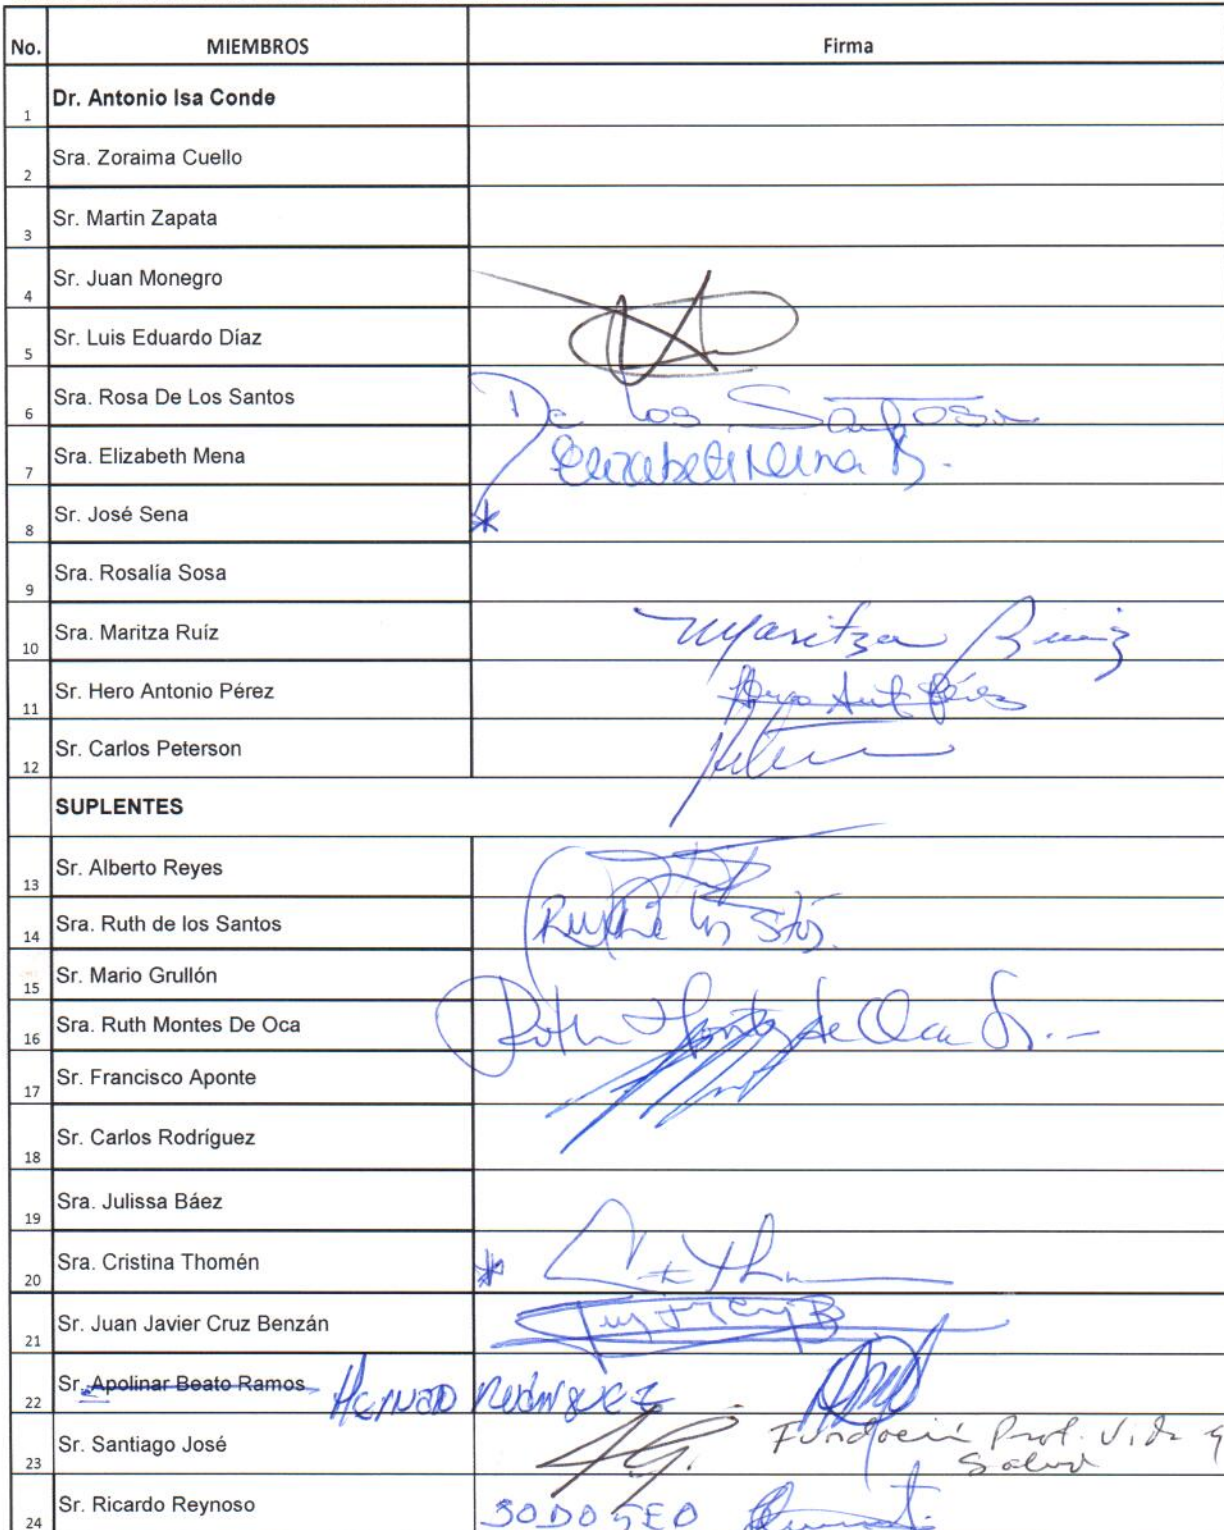 No. MIEMBROS Firma
1 Dr. Antonio Isa Conde
2 Sra. Zoraima Cuello
3 Sr. Martin Zapata
4 Sr. Juan Monegro
5 Sr. Luis Eduardo Díaz
6 Sra. Rosa De Los Santos De Los Santos
7 Sra. Elizabeth Mena Elizabeth Mena B.
8 Sr. José Sena *
9 Sra. Rosalía Sosa
10 Sra. Maritza Ruíz Maritza Ruiz
11 Sr. Hero Antonio Pérez Hero Ant Pérez
12 Sr. Carlos Peterson
SUPLENTES
13 Sr. Alberto Reyes
14 Sra. Ruth de los Santos Ruth de los Stos.
15 Sr. Mario Grullón
16 Sra. Ruth Montes De Oca Ruth Montes de Oca S.-
17 Sr. Francisco Aponte
18 Sr. Carlos Rodríguez
19 Sra. Julissa Báez
20 Sra. Cristina Thomén *
21 Sr. Juan Javier Cruz Benzán
22 Sr. Apolinar Beato Ramos
23 Sr. Santiago José Fundación Prof. Vida y
Salud
24 Sr. Ricardo Reynoso SODOGEO